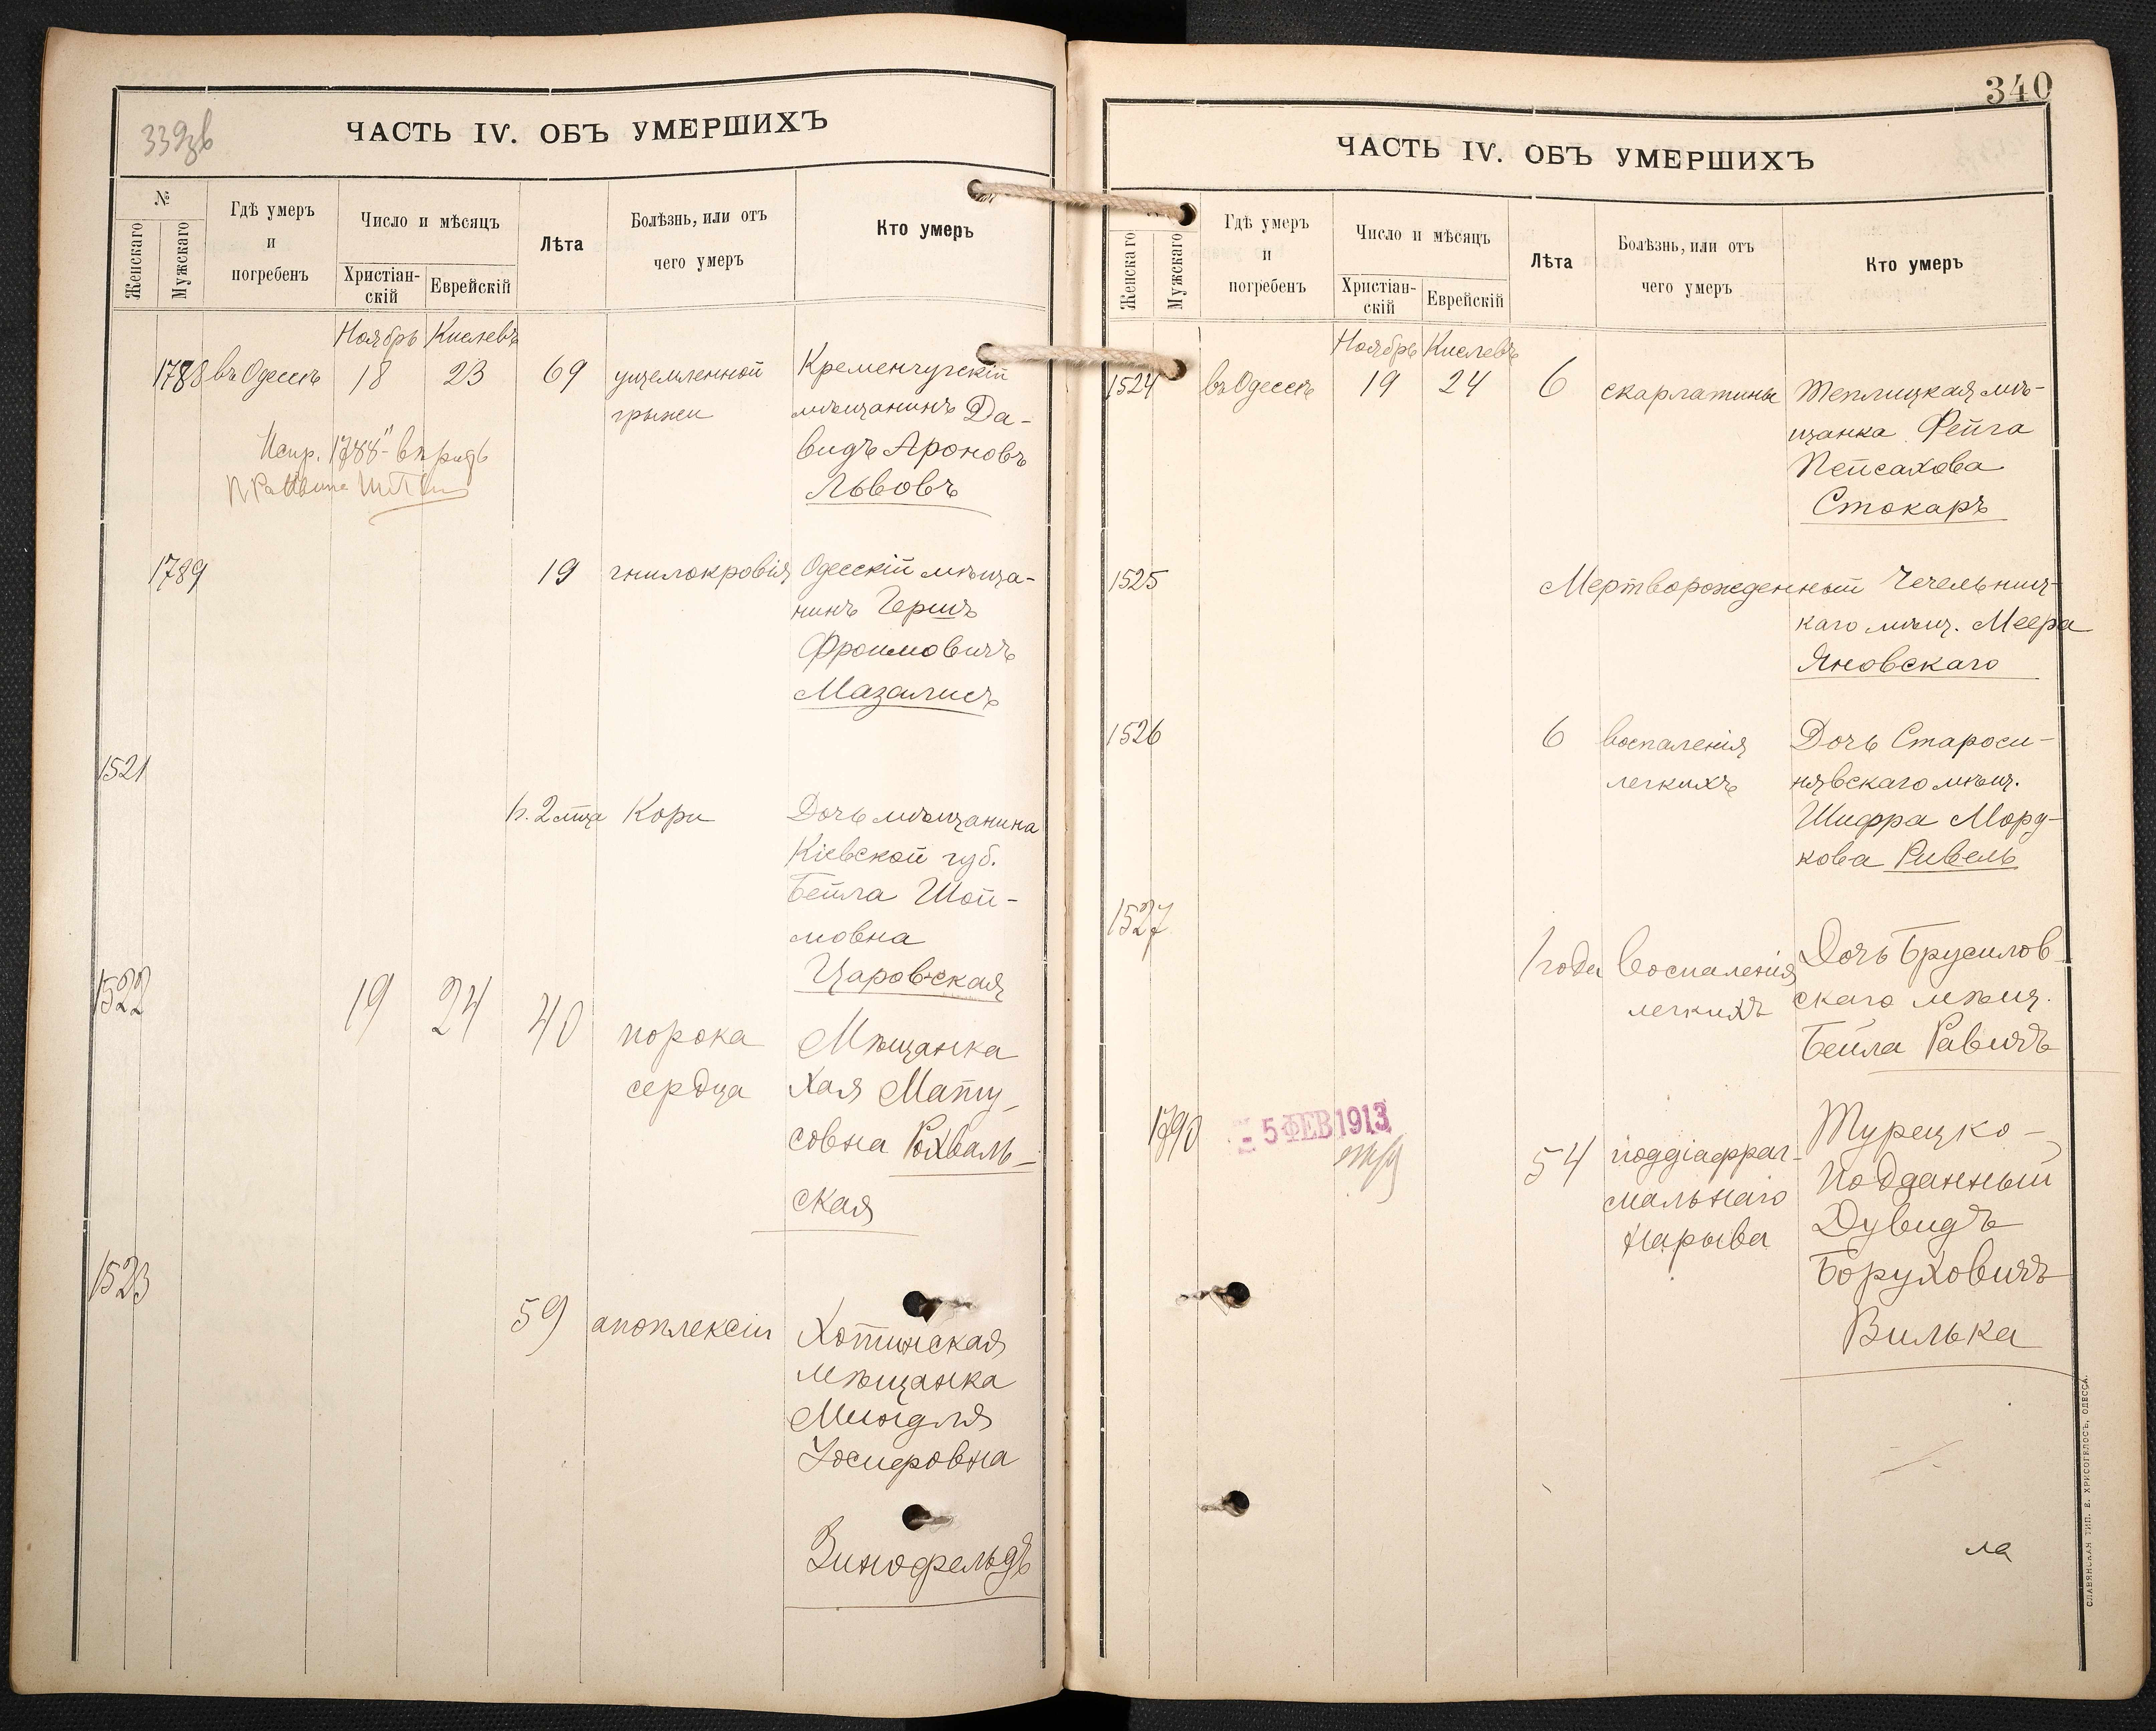 339зв
ЧАСТЬ IV. ОБЪ УМЕРШИХЪ
№
Женскаго
Мужскаго
Гдѣ умеръ
и
погребенъ
Число и мѣсяцъ
Христіан-
скій
Еврейскій
Лѣта
Болѣзнь, или отъ
чего умеръ
Кто умеръ
Ноябрь Кислевъ
1788 въ Одессѣ 18 23 69 ущемленной Кременчугскій
грыжи мѣщанинъ Да-
видъ Ароновъ
Львовъ
Испр. "1788"
1789 19 гнилокровія Одесскій мѣща-
нинъ Гершъ
Фроимовичъ
Мазалисъ
1521
2 мца Кори Дочь мѣщанина
Кіевской губ.
Бейла Шой-
мовна
Царовская
1522 19 24 40 порока Мѣщанка
сердца Хая Мату-
совна Рохваль-
ская
1523
59 апоплексіи Хотинская
мѣщанка
Миндля
Іосифовна
Зинофельдъ
340
ЧАСТЬ IV. ОБЪ УМЕРШИХЪ
Женскаго
Мужскаго
Гдѣ умеръ
и
погребенъ
Число и мѣсяцъ
Христіан-
скій
Еврейскій
Лѣта
Болѣзнь, или отъ
чего умеръ
Кто умеръ
Ноябрь Кислевъ
1524 въ Одессѣ 19 24 6 скарлатины Теплицкая мѣ-
щанка Фейга
Пейсахова
Стокаръ
1525 Мертворожденный Чечельниц-
каго мѣщ. Меера
Яновскаго
1526 6 воспаленія Дочь Староси-
легкихъ нявскаго мѣщ.
Шифра Морд-
кова Ривель
1527
1 года Воспаленія Дочь Брусилов-
легкихъ скаго мѣщ.
Бейла Равичъ
1790 5 ФЕВ 1913
54 поддіафраг- Турецко-
мальнаго подданный
нарыва Дувидъ
Боруховичъ
Вилька
ла
СЛАВЯНСКАЯ ТИП. Е. ХРИСОГЕЛОСЪ, ОДЕССА.